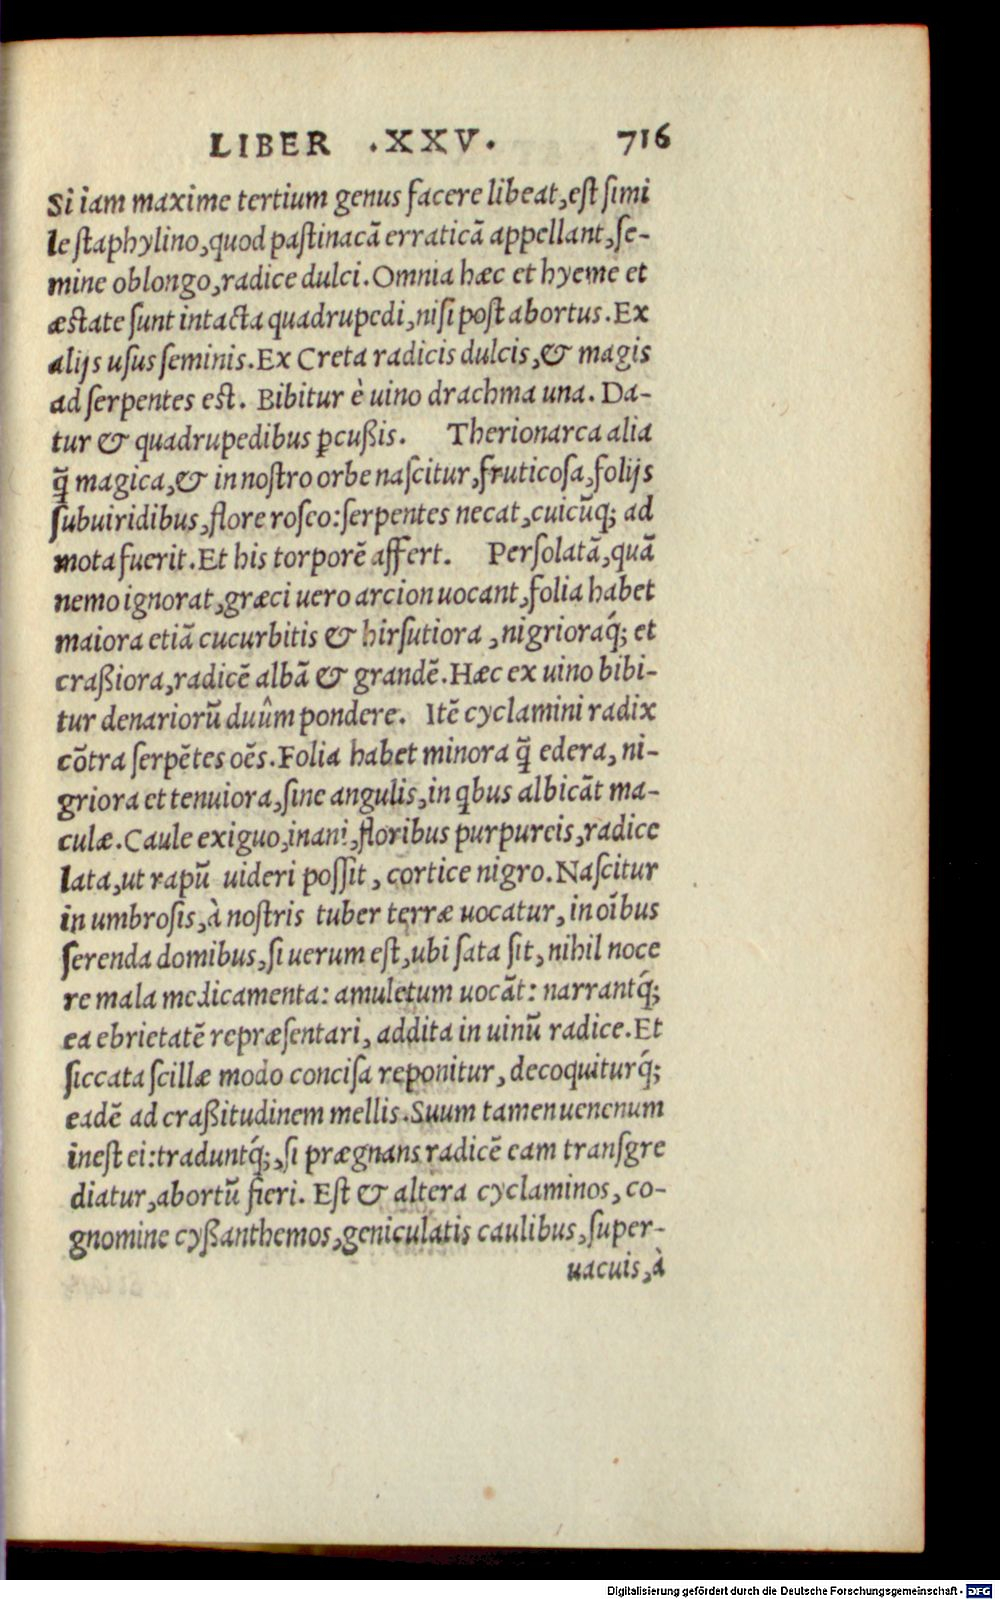 LIBER .XXV. 716
Si iam maxime tertium genus facere libeat, est simi
le staphylino, quod pastinacã erraticã appellant, se-
mine oblongo, radice dulci. Omnia hæc et hyeme et
æstate sunt intacta quadrupedi, nisi post abortus. Ex
alijs usus seminis. Ex Creta radicis dulcis, & magis
ad serpentes est. Bibitur è uino drachma una. Da-
tur & quadrupedibus ꝑcußis. Therionarca alia
q̃ magica, & in nostro orbe nascitur, fruticosa, folijs
subuiridibus, flore roseo: serpentes necat, cuicũq; ad
mota fuerit. Et his torporẽ affert. Persolatã, quã
nemo ignorat, græci uero arcion uocant, folia habet
maiora etiã cucurbitis & hirsutiora, nigrioraq́; et
craßiora, radicẽ albã & grandẽ. Hæc ex uino bibi-
tur denariorũ duûm pondere. Itẽ cyclamini radix
cõtra serpẽtes oẽs. Folia habet minora q̃ edera, ni-
griora et tenuiora, sine angulis, in qbus albicãt ma-
culæ. Caule exiguo, inani, floribus purpureis, radice
lata, ut rapũ uideri possit, cortice nigro. Nascitur
in umbrosis, à nostris tuber terræ uocatur, in oĩbus
serenda domibus, si uerum est, ubi sata sit, nihil noce
re mala medicamenta: amuletum uocãt: narrantq́;
ea ebrietatẽ repræsentari, addita in uinũ radice. Et
siccata scillæ modo concisa reponitur, decoquiturq́;
eadẽ ad craßitudinem mellis. Suum tamen uenenum
inest ei: traduntq́;, si prægnans radicẽ eam transgre
diatur, abortũ fieri. Est & altera cyclaminos, co-
gnomine cyßanthemos, geniculatis caulibus, super-
uacuis, à
Digitalisierung gefördert durch die Deutsche Forschungsgemeinschaft - DFG